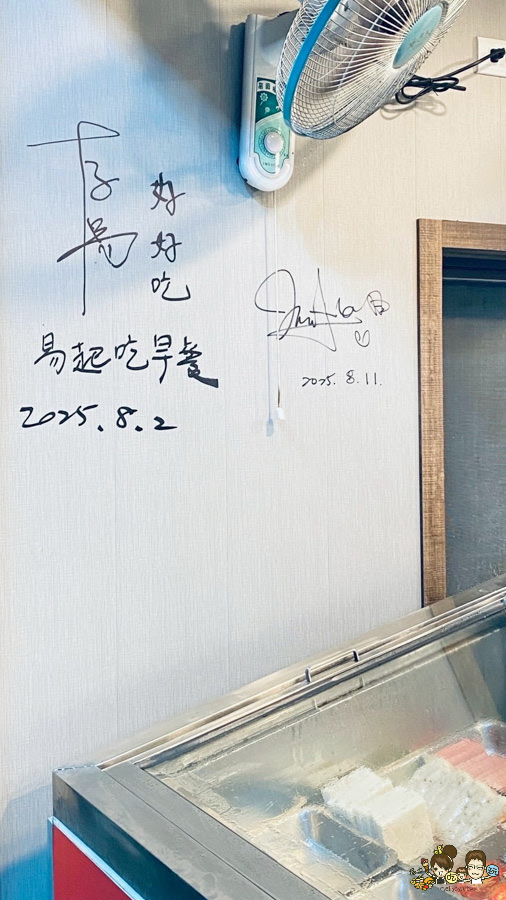 李亮
好好吃
易起吃早餐
2025.8.2
2025.8.11.